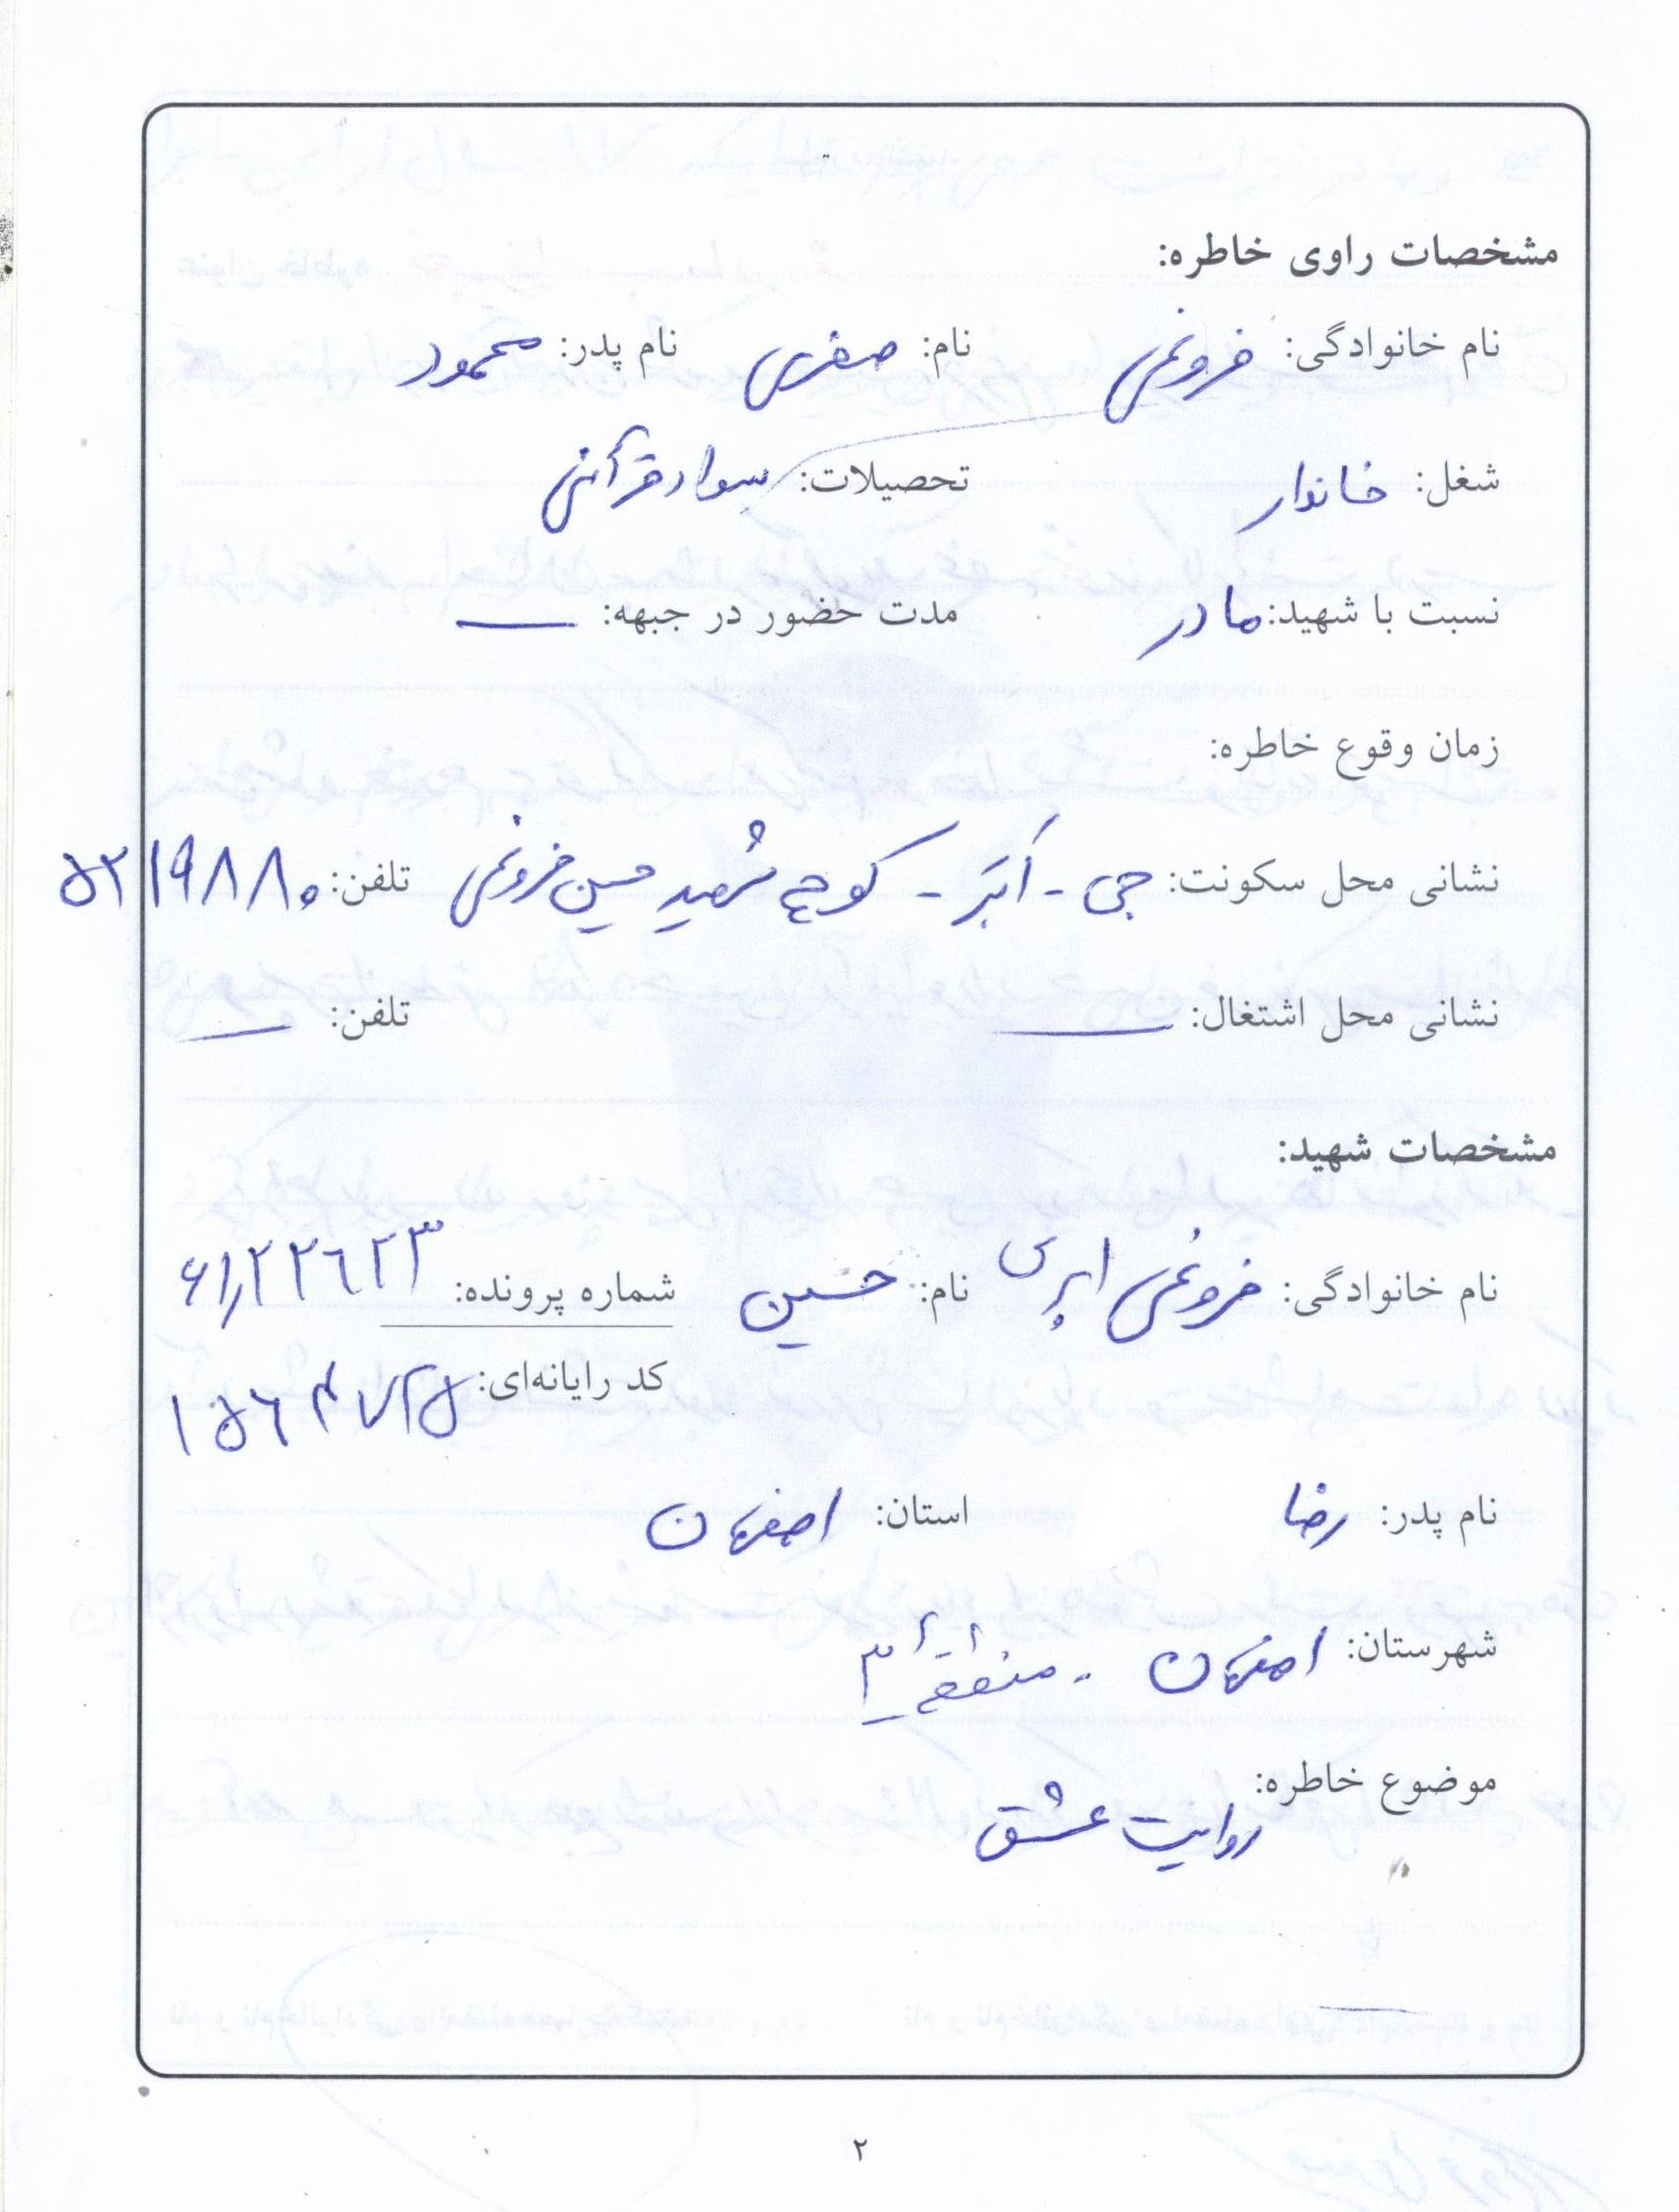 مشخصات راوی خاطره:
نام خانوادگی: فروغی نام: صغری نام پدر: محمود
شغل: خاندار تحصیلات: سواد قرآنی
نسبت با شهید: مادر مدت حضور در جبهه: —
زمان وقوع خاطره:
نشانی محل سکونت: جی - ابر - کوچه شهید حسین فروغی تلفن: ۵۲۱۹۸۸۰
نشانی محل اشتغال: — تلفن: —
مشخصات شهید:
نام خانوادگی: فروغی ابری نام: حسین شماره پرونده: ۶۱,۲۲۶۲۳
کد رایانه‌ای: ۱۵۶۴۷۲۵
نام پدر: رضا استان: اصفهان
شهرستان: اصفهان - منطقه ۳
موضوع خاطره:
روایت عشق
۲